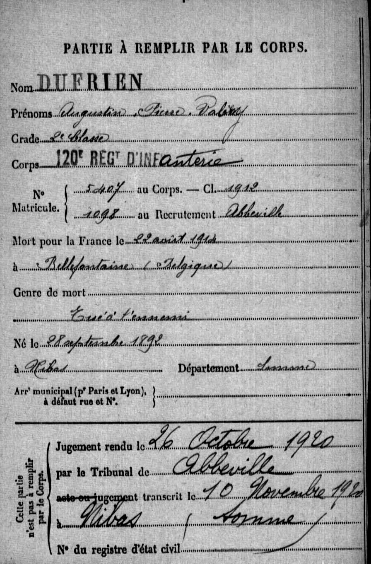 PARTIE À REMPLIR PAR LE CORPS.
Nom DUFRIEN
Prénoms Augustin, Pierre, Valéry
Grade 2e Classe
Corps 120E REGT D'INFanterie
No Matricule. { 5407 au Corps. — Cl. 1912
1098 au Recrutement Abbeville
Mort pour la France le 22 août 1914
à Bellefontaine (Belgique)
Genre de mort
Tué à l'ennemi
Né le 28 septembre 1892
à Nibas Département Somme
Arrt municipal (pr Paris et Lyon), à défaut rue et No. }
Cette partie n'est pas à remplir par le Corps.
Jugement rendu le 26 Octobre 1920
par le Tribunal de Abbeville
acte ou jugement transcrit le 10 Novembre 1920
à Nibas (Somme)
No du registre d'état civil